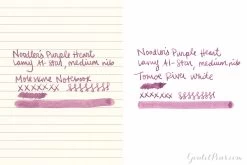 Noodler's Purple Heart
Lamy Al-Star, medium nib
Moleskine Notebook
xxxxxxx
Noodler's Purple Heart
Lamy Al-Star, medium nib
Tomoe River White
xxxxxxx